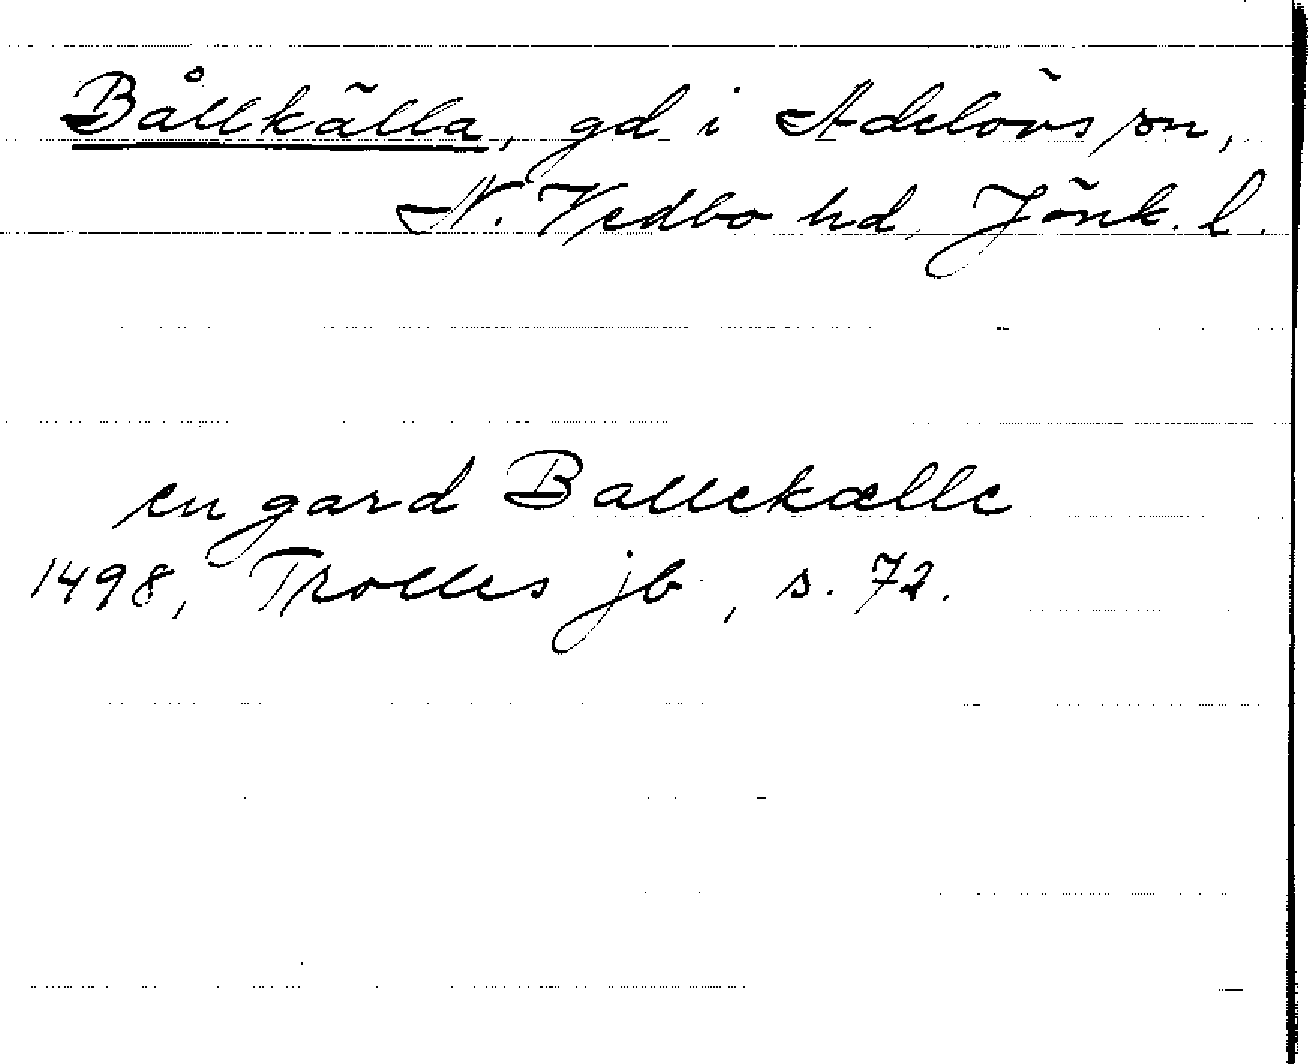 Bållkälla, gd i Adelövs sn,
N. Vedbo hd, Jönk. l.
en gard Ballekælle
1498, Trolles jb, s. 72.